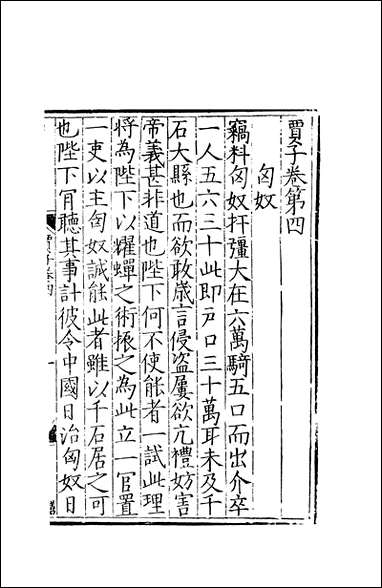 賈子卷第四
匈奴
竊料匈奴扞彊大在六萬騎五口而出介卒
一人五六三十此即戶口三十萬耳未及千
石大縣也而欲敢歲言侵盗屢欲亢禮妨害
帝義甚非道也陛下何不使能者一試此理
將為陛下以耀蟬之術振之為此立一官置
一吏以主匈奴誠能此者雖以千石居之可
也陛下肎聽其事計彼令中國日治匈奴日